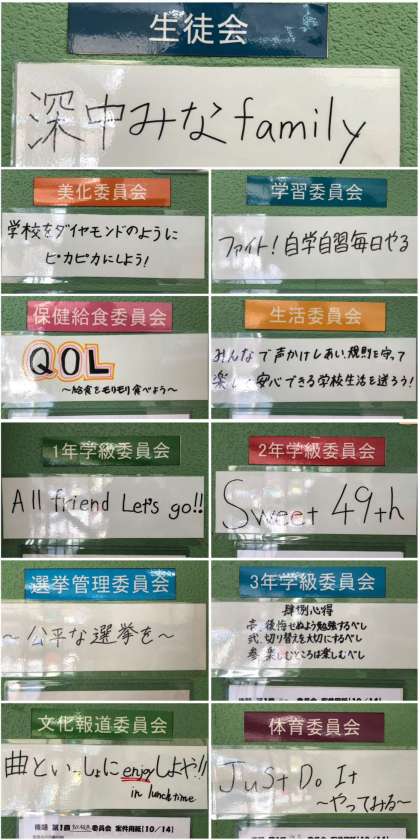 生徒会
深中みなfamily
美化委員会
学校をダイヤモンドのように
ピカピカにしよう!
学習委員会
ファイト!自学自習毎日やる
保健給食委員会
QOL
～給食をモリモリ食べよう～
生活委員会
みんなで声かけしあい、規則を守って
楽しく安心できる学校生活を送ろう!
1年学級委員会
All friend Let's go!!
2年学級委員会
Sweet 49th
選挙管理委員会
～公平な選挙を～
3年学級委員会
肆捌心得
壱.後悔せぬよう勉強するべし
弐.切り替えを大切にするべし
参.楽しむところは楽しむべし
文化報道委員会
曲といっしょにenjoyしよや!!
in lunch time
後期 第1回 委員会 案件用紙(10/14)
体育委員会
Just Do It
～やってみる～